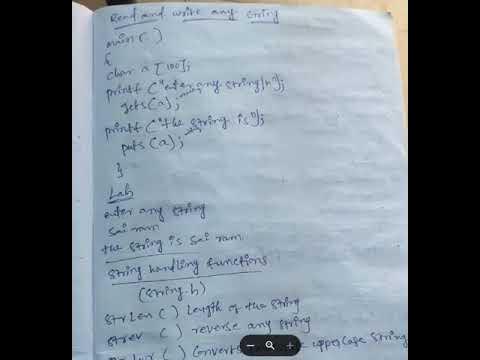 Read and write any string
main( )
{
char a [100];
printf ("enter any string\n");
gets(a);
printf ("the string is");
puts (a);
}
Lab
enter any string
sai ram
the string is sai ram
string handling functions
(string.h)
strlen ( ) length of the string
strev ( ) reverse any string
( ) Converts uppercase string